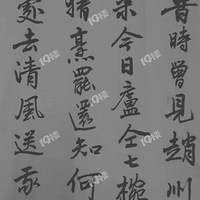 昔時曾見趙州
来今日盧仝七椀
猜烹罷還知何
處去清風送我